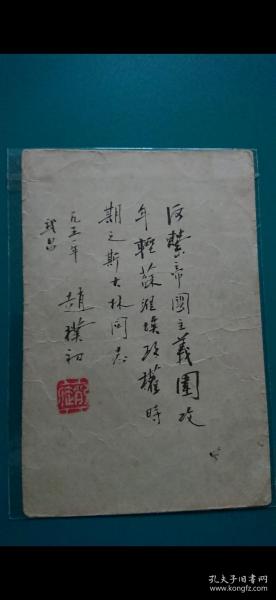 反擊帝國主義圍攻
年輕蘇維埃政權時
期之斯大林同志
一九五一年 趙樸初
武昌
孔夫子旧书网
www.kongfz.com